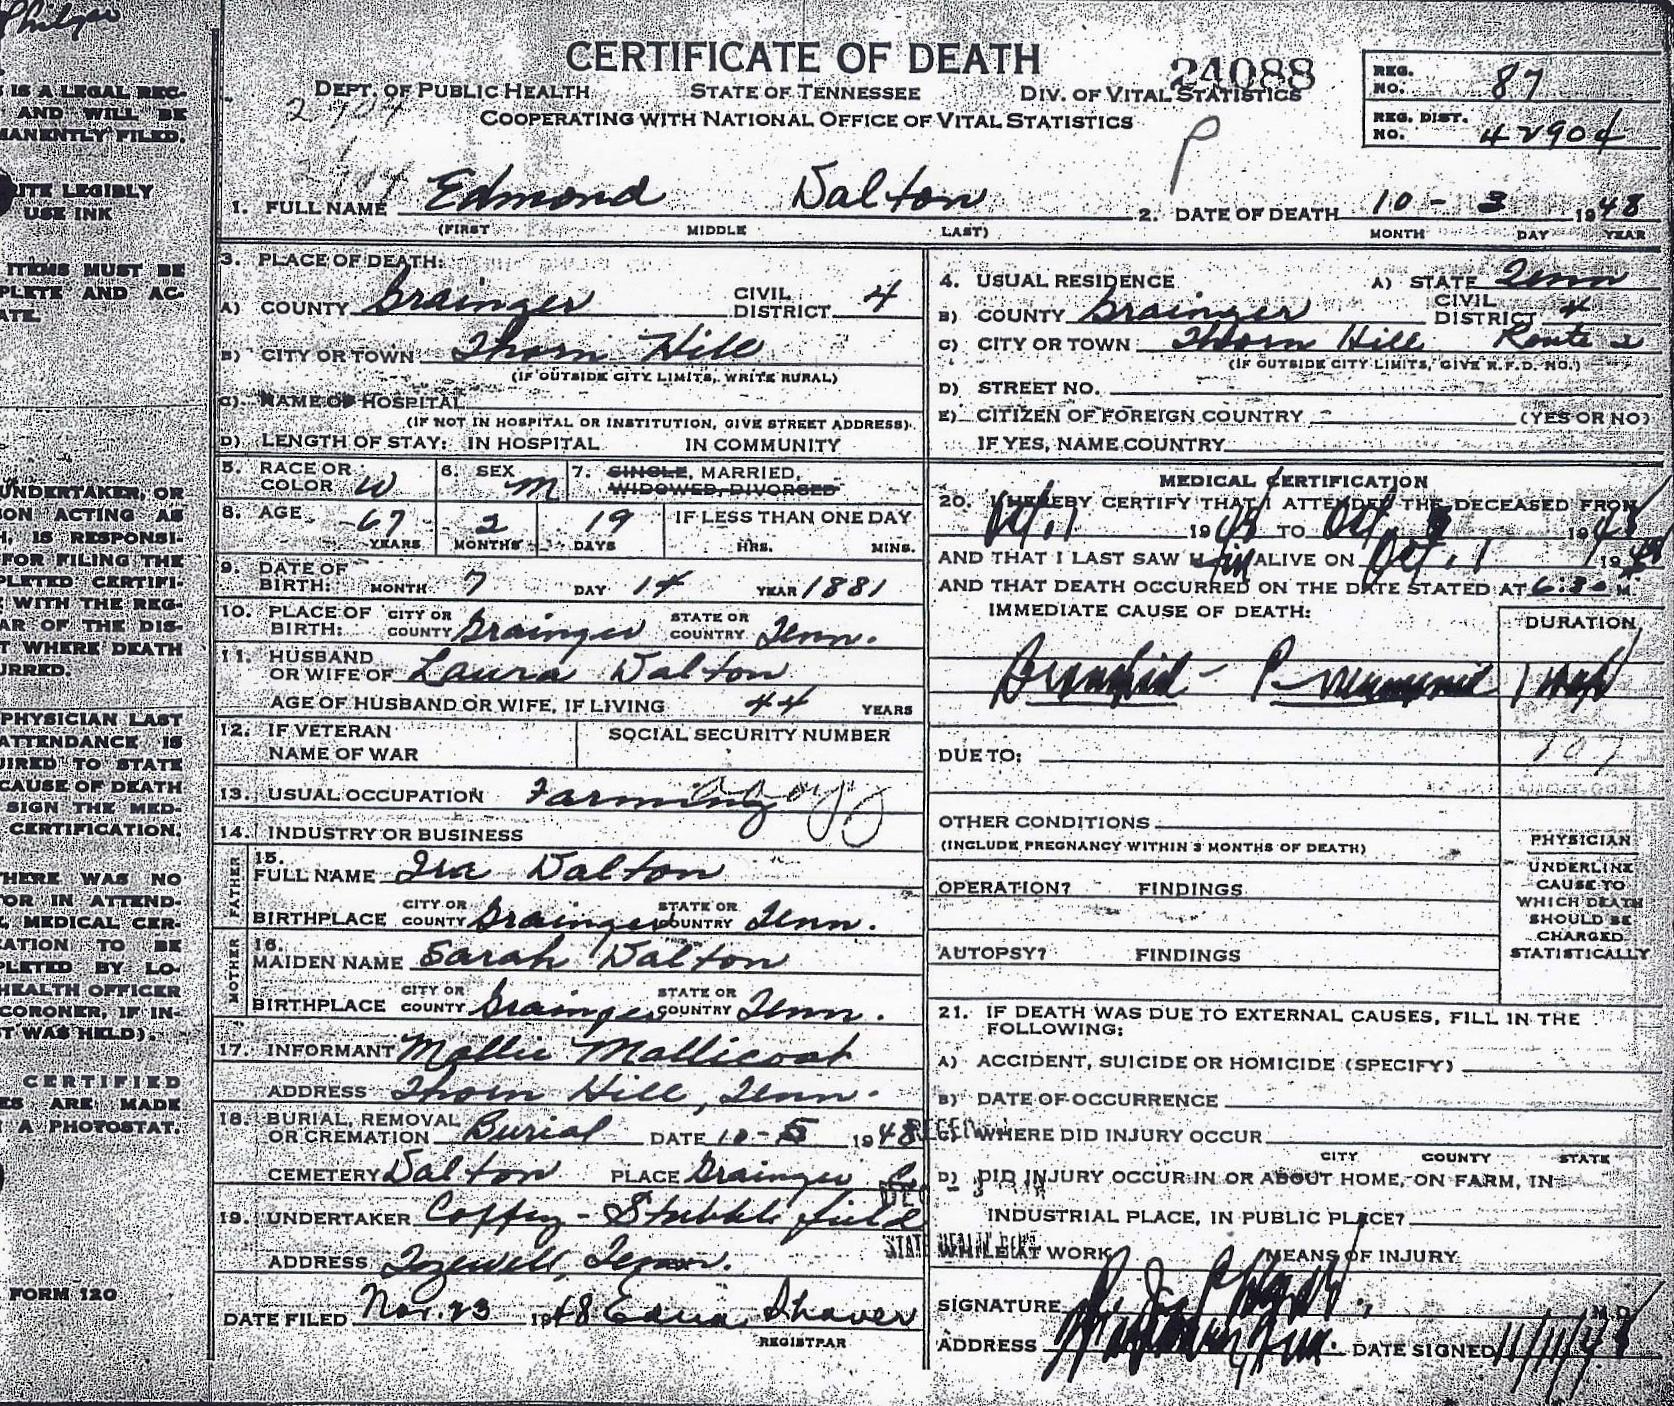 IS A LEGAL REC-
AND WILL BE
MANENTLY FILED.
RITE LEGIBLY
USE INK
ITEMS MUST BE
PLETE AND AC-
ATE.
UNDERTAKER, OR
SON ACTING AS
H, IS RESPONSI-
FOR FILING THE
PLETED CERTIFI-
WITH THE REG-
AR OF THE DIS-
T WHERE DEATH
URRED.
PHYSICIAN LAST
ATTENDANCE IS
UIRED TO STATE
CAUSE OF DEATH
SIGN THE MED-
CERTIFICATION.
HERE WAS NO
TOR IN ATTEND-
MEDICAL CER-
CATION TO BE
PLETED BY LO-
HEALTH OFFICER
CORONER, IF IN-
ST WAS HELD).
CERTIFIED
ES ARE MADE
A PHOTOSTAT.
FORM 120
CERTIFICATE OF DEATH
24088
DEPT. OF PUBLIC HEALTH STATE OF TENNESSEE DIV. OF VITAL STATISTICS
COOPERATING WITH NATIONAL OFFICE OF VITAL STATISTICS
REG. NO. 87
REG. DIST. NO. 42904
P
1. FULL NAME Edmond Dalton 2. DATE OF DEATH 10 - 3 1948
(FIRST MIDDLE LAST) MONTH DAY YEAR
3. PLACE OF DEATH:
A) COUNTY Grainger CIVIL DISTRICT 4
B) CITY OR TOWN Thorn Hill
(IF OUTSIDE CITY LIMITS, WRITE RURAL)
C) NAME OF HOSPITAL
(IF NOT IN HOSPITAL OR INSTITUTION, GIVE STREET ADDRESS)
D) LENGTH OF STAY: IN HOSPITAL IN COMMUNITY
5. RACE OR COLOR W 6. SEX M 7. SINGLE, MARRIED, WIDOWED, DIVORCED
8. AGE 67 YEARS 2 MONTHS 19 DAYS IF LESS THAN ONE DAY HRS. MINS.
9. DATE OF BIRTH: MONTH 7 DAY 14 YEAR 1881
10. PLACE OF BIRTH: CITY OR COUNTY Grainger STATE OR COUNTRY Tenn.
11. HUSBAND OR WIFE OF Laura Dalton
AGE OF HUSBAND OR WIFE, IF LIVING 44 YEARS
12. IF VETERAN NAME OF WAR SOCIAL SECURITY NUMBER
13. USUAL OCCUPATION Farming
14. INDUSTRY OR BUSINESS
FATHER
15. FULL NAME Ira Dalton
BIRTHPLACE CITY OR COUNTY Grainger STATE OR COUNTRY Tenn.
MOTHER
16. MAIDEN NAME Sarah Dalton
BIRTHPLACE CITY OR COUNTY Grainger STATE OR COUNTRY Tenn.
17. INFORMANT Mollie Mallicoat
ADDRESS Thorn Hill, Tenn.
18. BURIAL, REMOVAL OR CREMATION Burial DATE 10-5 1948
CEMETERY Dalton PLACE Grainger Co
19. UNDERTAKER Coffey - Stubblefield
ADDRESS Tazewell, Tenn.
DATE FILED Nov. 23 1948 Edna Shaver
REGISTRAR
4. USUAL RESIDENCE A) STATE Tenn
B) COUNTY Grainger CIVIL DISTRICT 4
C) CITY OR TOWN Thorn Hill Route 2
(IF OUTSIDE CITY LIMITS, GIVE R.F.D. NO.)
D) STREET NO.
E) CITIZEN OF FOREIGN COUNTRY - (YES OR NO)
IF YES, NAME COUNTRY
MEDICAL CERTIFICATION
20. I HEREBY CERTIFY THAT I ATTENDED THE DECEASED FROM
Oct. 1 1948 TO Oct. 3 1948
AND THAT I LAST SAW HIM ALIVE ON Oct. 1 1948
AND THAT DEATH OCCURRED ON THE DATE STATED AT 6:30 M.
IMMEDIATE CAUSE OF DEATH: DURATION
Bronchial - Pneumonia 1 week
DUE TO: 107
OTHER CONDITIONS
(INCLUDE PREGNANCY WITHIN 3 MONTHS OF DEATH)
OPERATION? FINDINGS
AUTOPSY? FINDINGS
PHYSICIAN
UNDERLINE
CAUSE TO
WHICH DEATH
SHOULD BE
CHARGED
STATISTICALLY
21. IF DEATH WAS DUE TO EXTERNAL CAUSES, FILL IN THE
FOLLOWING:
A) ACCIDENT, SUICIDE OR HOMICIDE (SPECIFY)
B) DATE OF OCCURRENCE
C) WHERE DID INJURY OCCUR
CITY COUNTY STATE
D) DID INJURY OCCUR IN OR ABOUT HOME, ON FARM, IN
INDUSTRIAL PLACE, IN PUBLIC PLACE?
WHILE AT WORK MEANS OF INJURY
SIGNATURE
ADDRESS DATE SIGNED 11/11/48